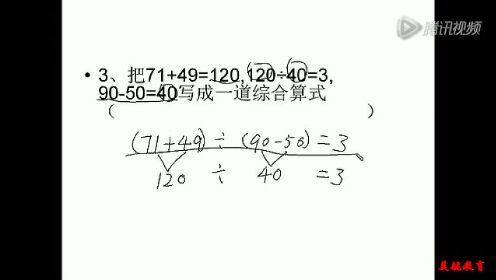 腾讯视频
• 3、把71+49=120,120÷40=3,
90-50=40写成一道综合算式
(                    )
(71+49)÷(90-50)=3
120 ÷ 40 =3
美航教育